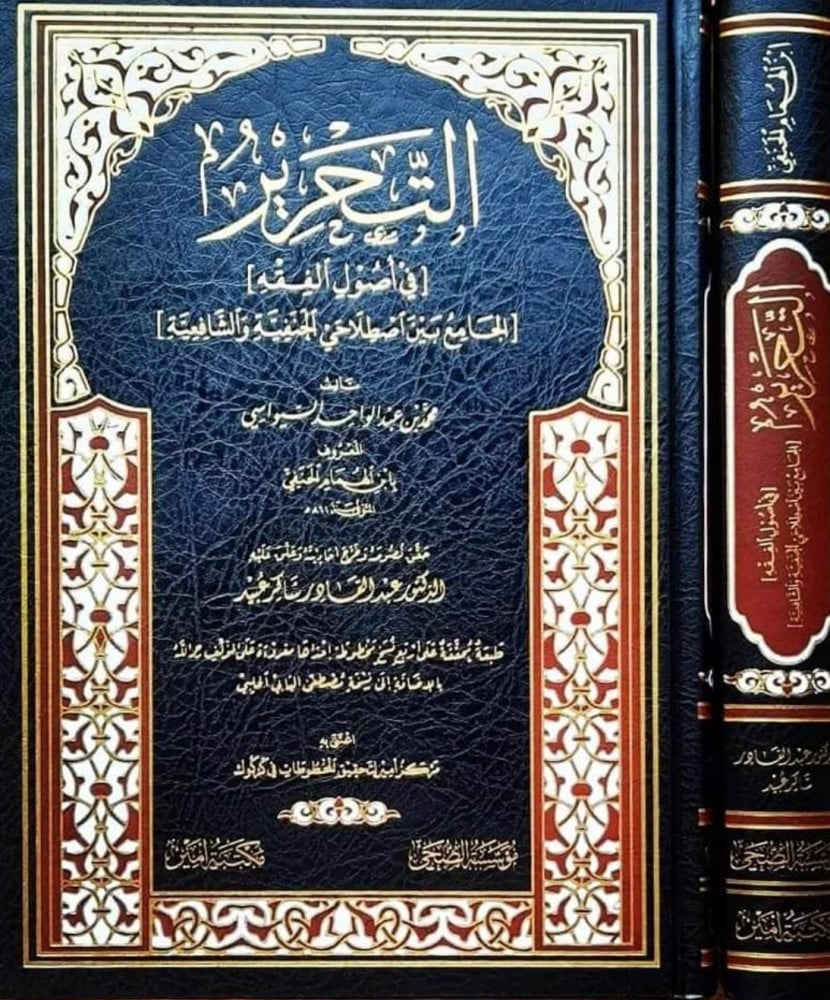 التَّحْرِيْرُ
[فِي أُصُوْلِ الفِقْهِ]
[الجَامِعُ بَيْنَ اصْطِلَاحَيِ الحَنَفِيَّةِ وَالشَّافِعِيَّةِ]
تأليف
محمد بن عبد الواحد السيواسي
المعروف
بابن الهمام الحنفي
المتوفى سنة ٨٦١هـ
حقق نصوصه وخرج أحاديثه وعلق عليه
الدكتور عبد القادر شاكر عبيد
طبعة محققة على أربع نسخ مخطوطة إحداها مقروءة على المؤلف رحمه الله
بالإضافة إلى نسخة مصطفى البابي الحلبي
اعتنى به
مركز أمير لتحقيق المخطوطات في كركوك
مؤسسة الضحى
مكتبة أمين
ابن الهمام الحنفي
التَّحْرِيْرُ
[في أصول الفقه]
[الجامع بين اصطلاحي الحنفية والشافعية]
عبد القادر
شاكر عبيد
الضحى
مكتبة أمين